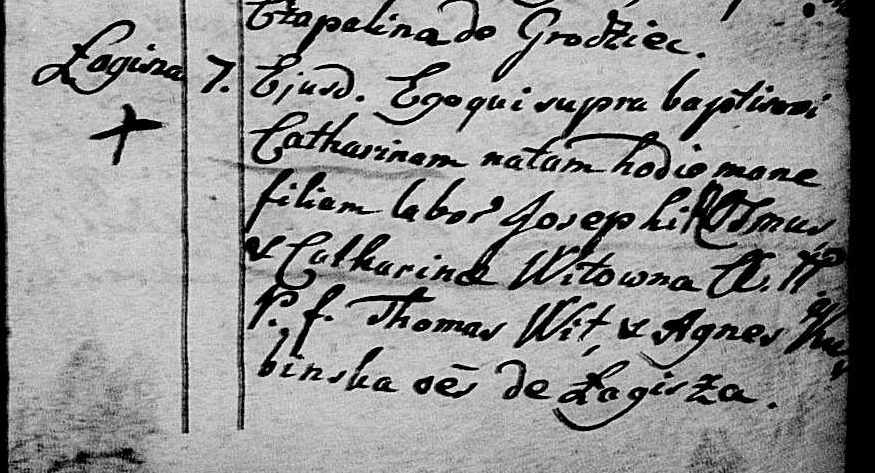 Czapalina de Grodziec.
Łagisza 7. Ejusd. Ego qui supra baptisavi
Catharinam natam hodie mane
filiam labor Josephi
& Catharinæ Witowna
P. f. Thomas Wit, & Agnes
binska oēs de Łagisza.